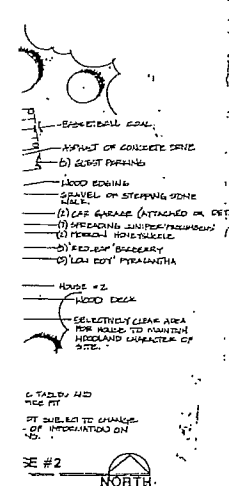 BASKETBALL GOAL
ASPHALT OR CONCRETE DRIVE
GUEST PARKING
WOOD EDGING
GRAVEL OR STEPPING STONE
WALK
(2) CAR GARAGE (ATTACHED OR DET
(7) SPREADING JUNIPER
HONEYSUCKLE
BARBERRY
'LOW BOY' PYRACANTHA
HOUSE #2
WOOD DECK
SELECTIVELY CLEAR AREA
FOR HOUSE TO MAINTAIN
WOODLAND CHARACTER OF
SITE.
SUBJECT TO CHANGE
OF INFORMATION ON
#2
NORTH